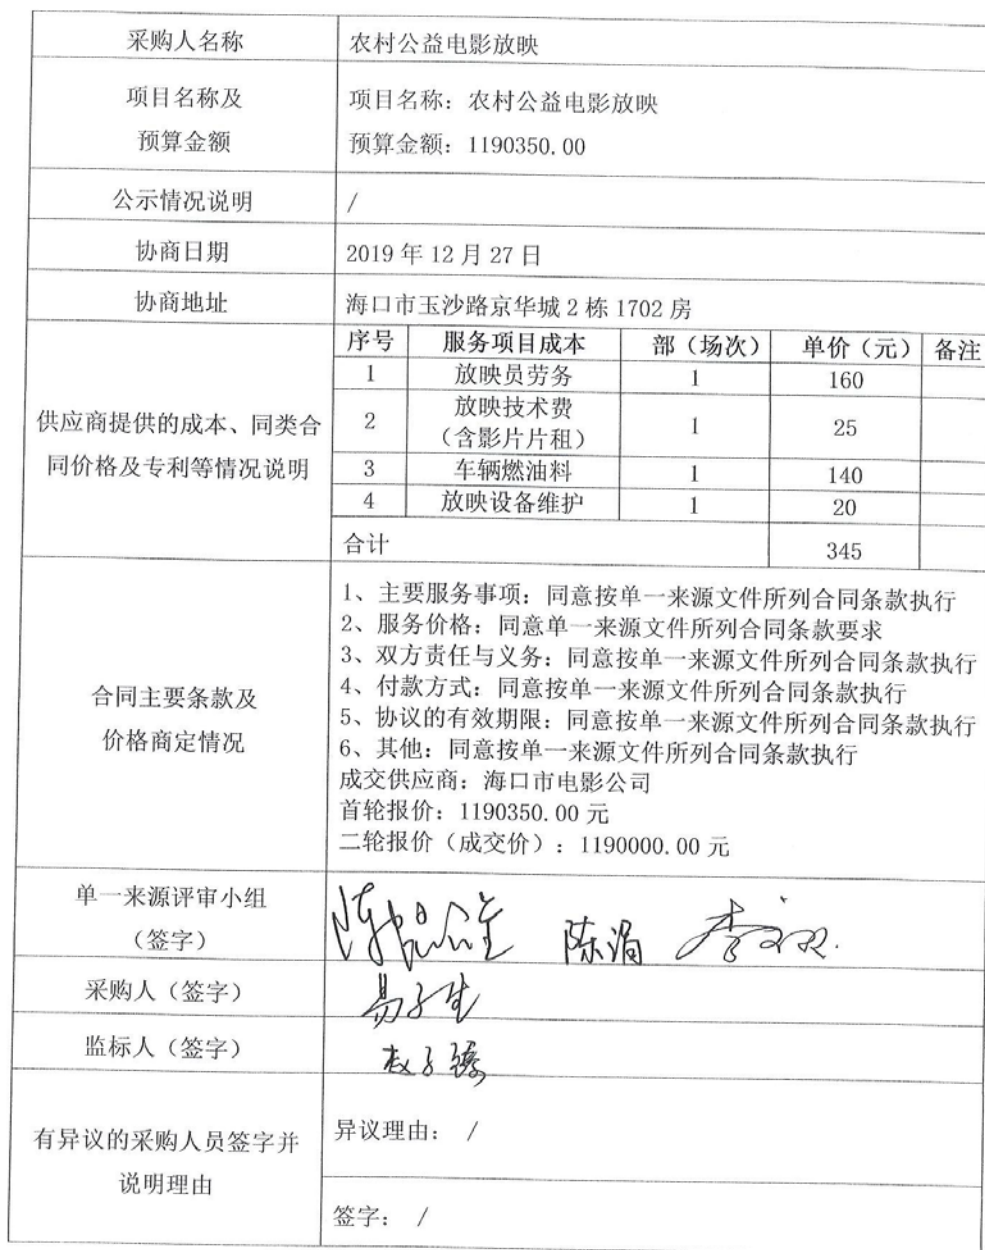 采购人名称 农村公益电影放映
项目名称及
预算金额
项目名称：农村公益电影放映
预算金额：1190350.00
公示情况说明 /
协商日期 2019 年 12 月 27 日
协商地址 海口市玉沙路京华城 2 栋 1702 房
供应商提供的成本、同类合
同价格及专利等情况说明
序号 服务项目成本 部（场次） 单价（元） 备注
1 放映员劳务 1 160
2 放映技术费
（含影片片租） 1 25
3 车辆燃油料 1 140
4 放映设备维护 1 20
合计 345
合同主要条款及
价格商定情况
1、主要服务事项：同意按单一来源文件所列合同条款执行
2、服务价格：同意单一来源文件所列合同条款要求
3、双方责任与义务：同意按单一来源文件所列合同条款执行
4、付款方式：同意按单一来源文件所列合同条款执行
5、协议的有效期限：同意按单一来源文件所列合同条款执行
6、其他：同意按单一来源文件所列合同条款执行
成交供应商：海口市电影公司
首轮报价：1190350.00 元
二轮报价（成交价）：1190000.00 元
单一来源评审小组
（签字）
陈涓
采购人（签字）
监标人（签字）
有异议的采购人员签字并
说明理由
异议理由： /
签字： /